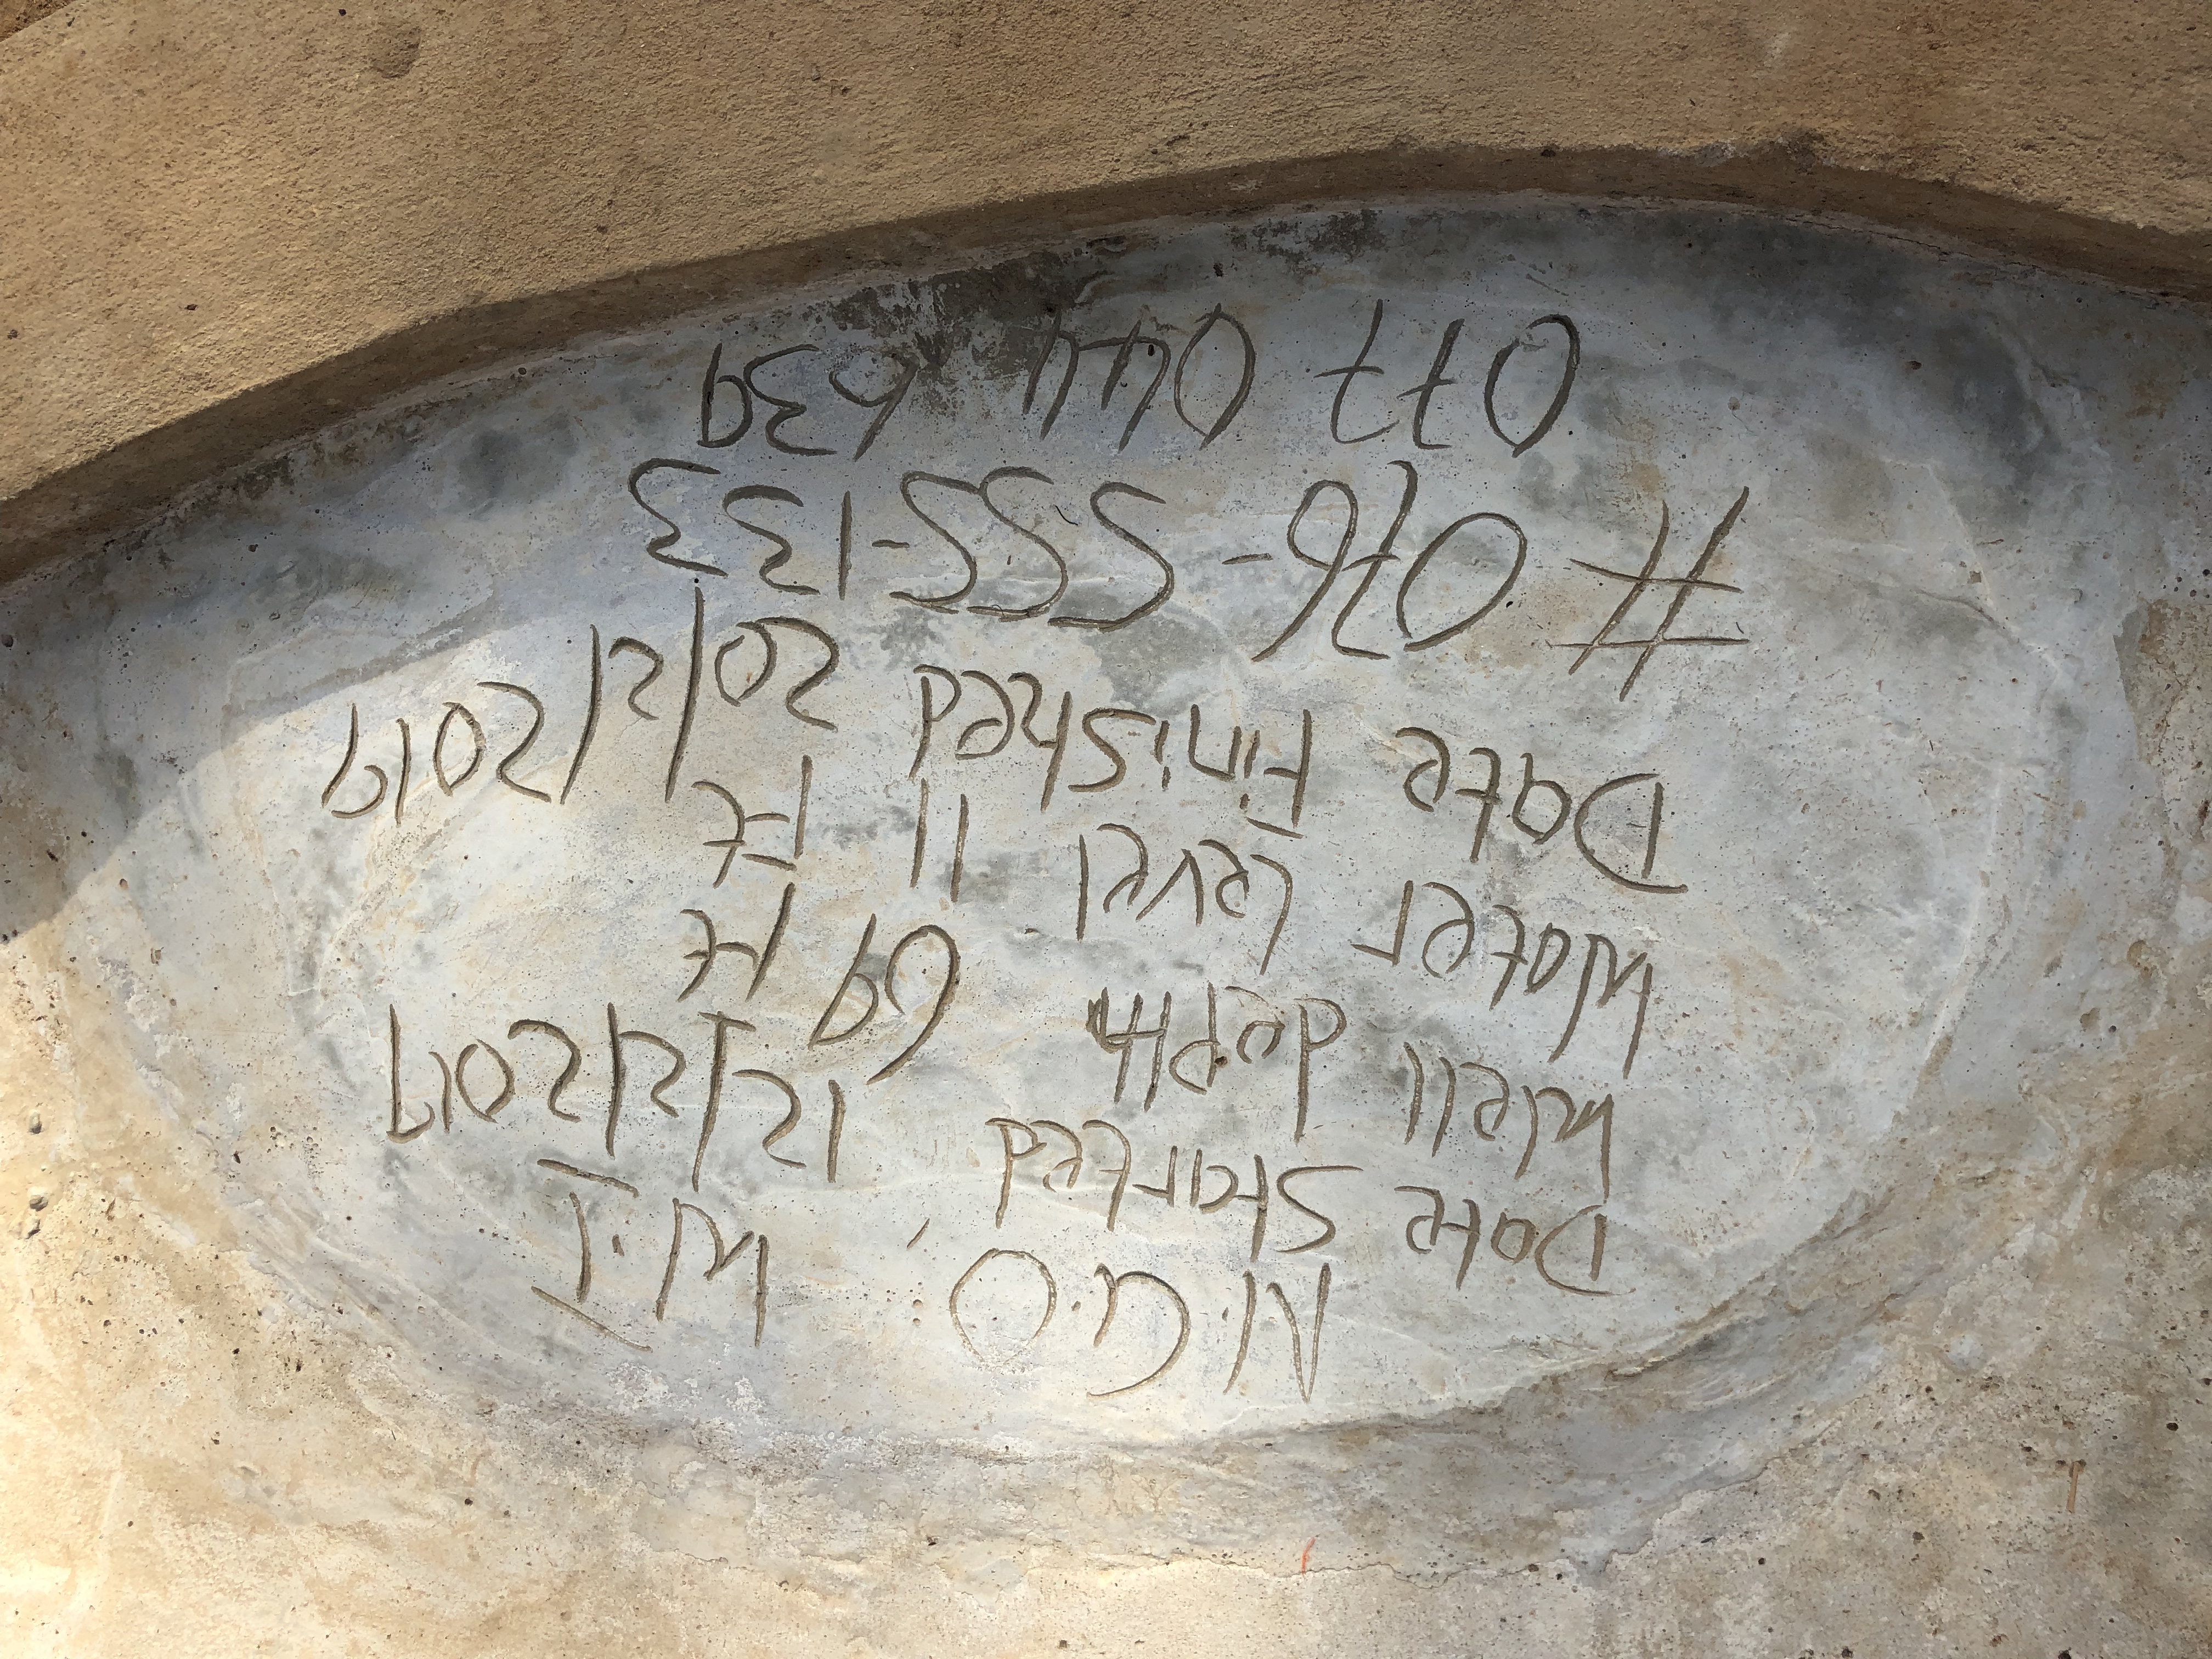 N.G.O. W.I
Date Started 12/2/2019
Well depth 69 Ft
Water Level 11 Ft
Date Finished 20/2/2019
# 076-555-133
077 044 639